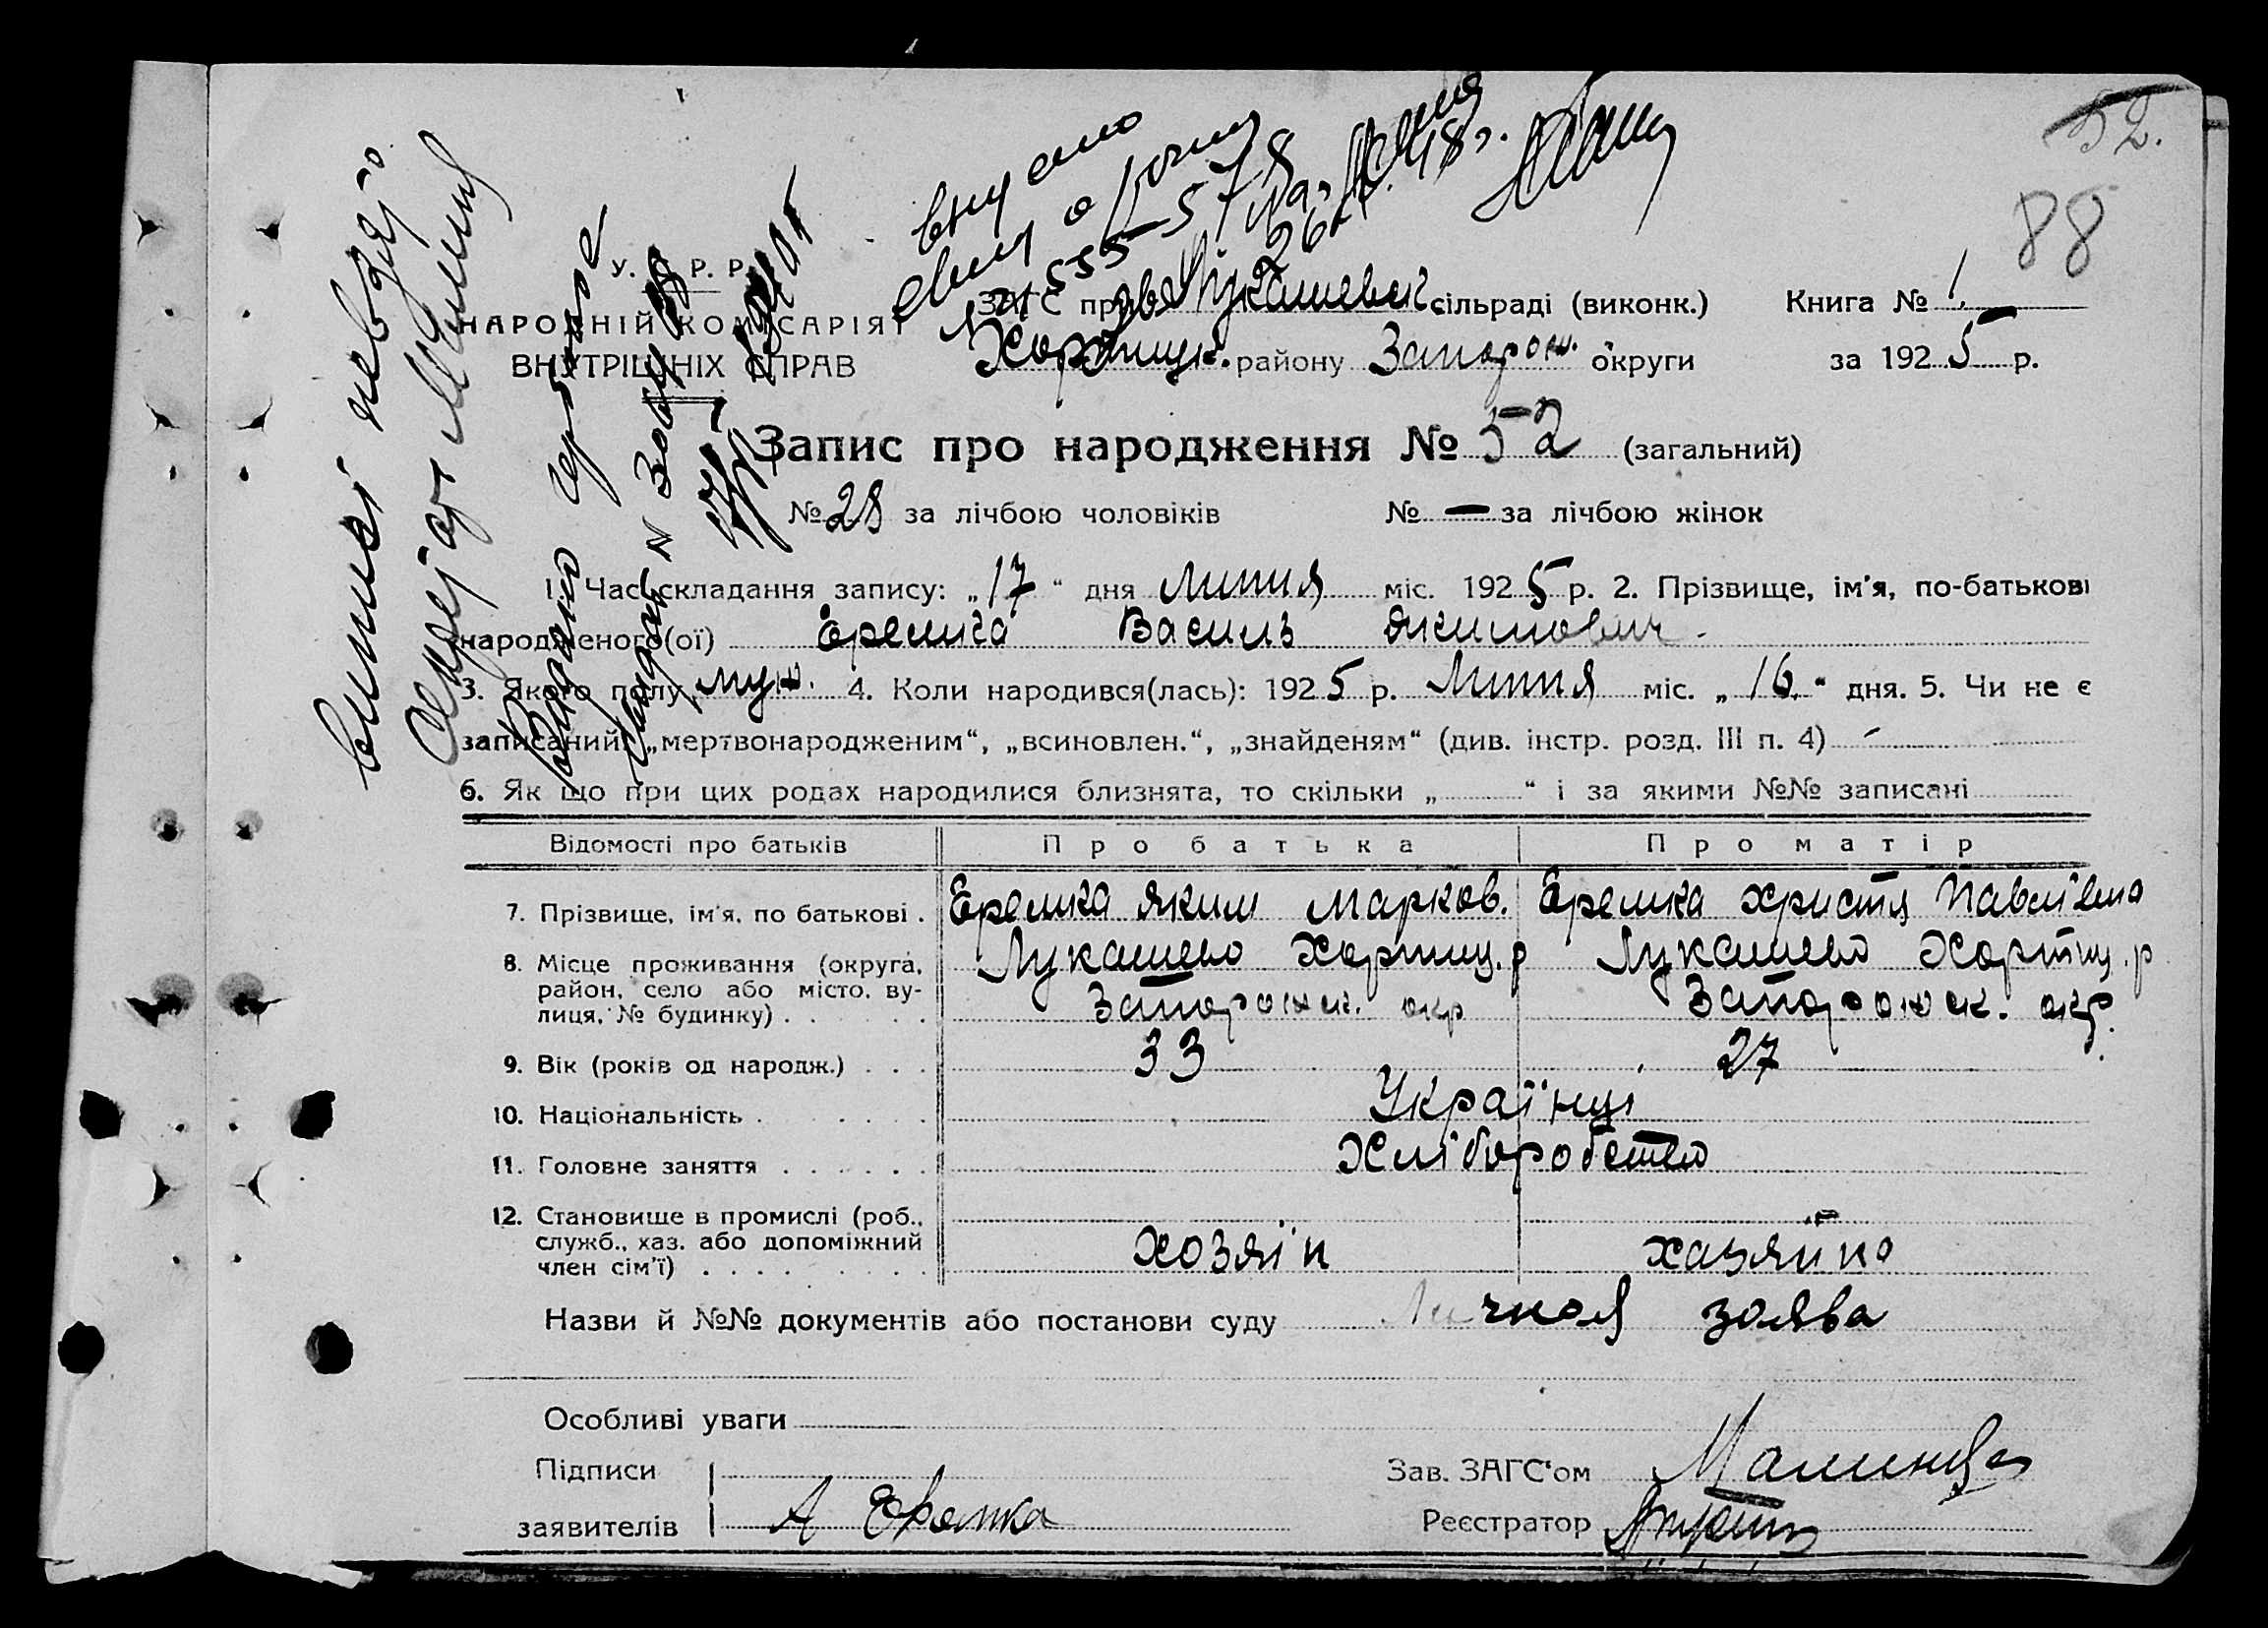 52.
88
У. С. Р. Р.
НАРОДНІЙ КОМІСАРІЯТ
ВНУТРІШНІХ СПРАВ
ЗАГС при Лукашевск. сільраді (виконк.) Книга № 1.
Хортицьк. району Запорож. округи за 1925 р.
Запис про народження № 52 (загальний)
№ 28 за лічбою чоловіків № — за лічбою жінок
1. Час складання запису: „17“ дня Липня міс. 1925 р. 2. Прізвище, ім'я, по-батькові
народженого(ої) Еремка Василь Якимович.
3. Якого полу муж. 4. Коли народився(лась): 1925 р. Липня міс. „16.“ дня. 5. Чи не є
записаний „мертвонародженим“, „всиновлен.“, „знайденям“ (див. інстр. розд. III п. 4) -
6. Як що при цих родах народилися близнята, то скільки „ “ і за якими №№ записані
Відомості про батьків Про батька Про матір
7. Прізвище, ім'я, по батькові . Еремка Яким Марков. Еремка Христя Павлівна
8. Місце проживання (округа, Лукашево Хортиц. р Лукашево Хортиц. р
район, село або місто, ву-
лиця, № будинку) . . . Запорожск. окр Запорожск. окр.
9. Вік (років од народж.) . . . 33 27
10. Національність . . . . Українці
11. Головне заняття . . . . . . Хліборобство
12. Становище в промислі (роб.,
служб., хаз. або допоміжний хозяїн хазяйка
член сім'ї) . . . . . . . .
Назви й №№ документів або постанови суду Личная заява
Особливі уваги
Підписи Зав. ЗАГС'ом
заявителів А Еремка Реєстратор